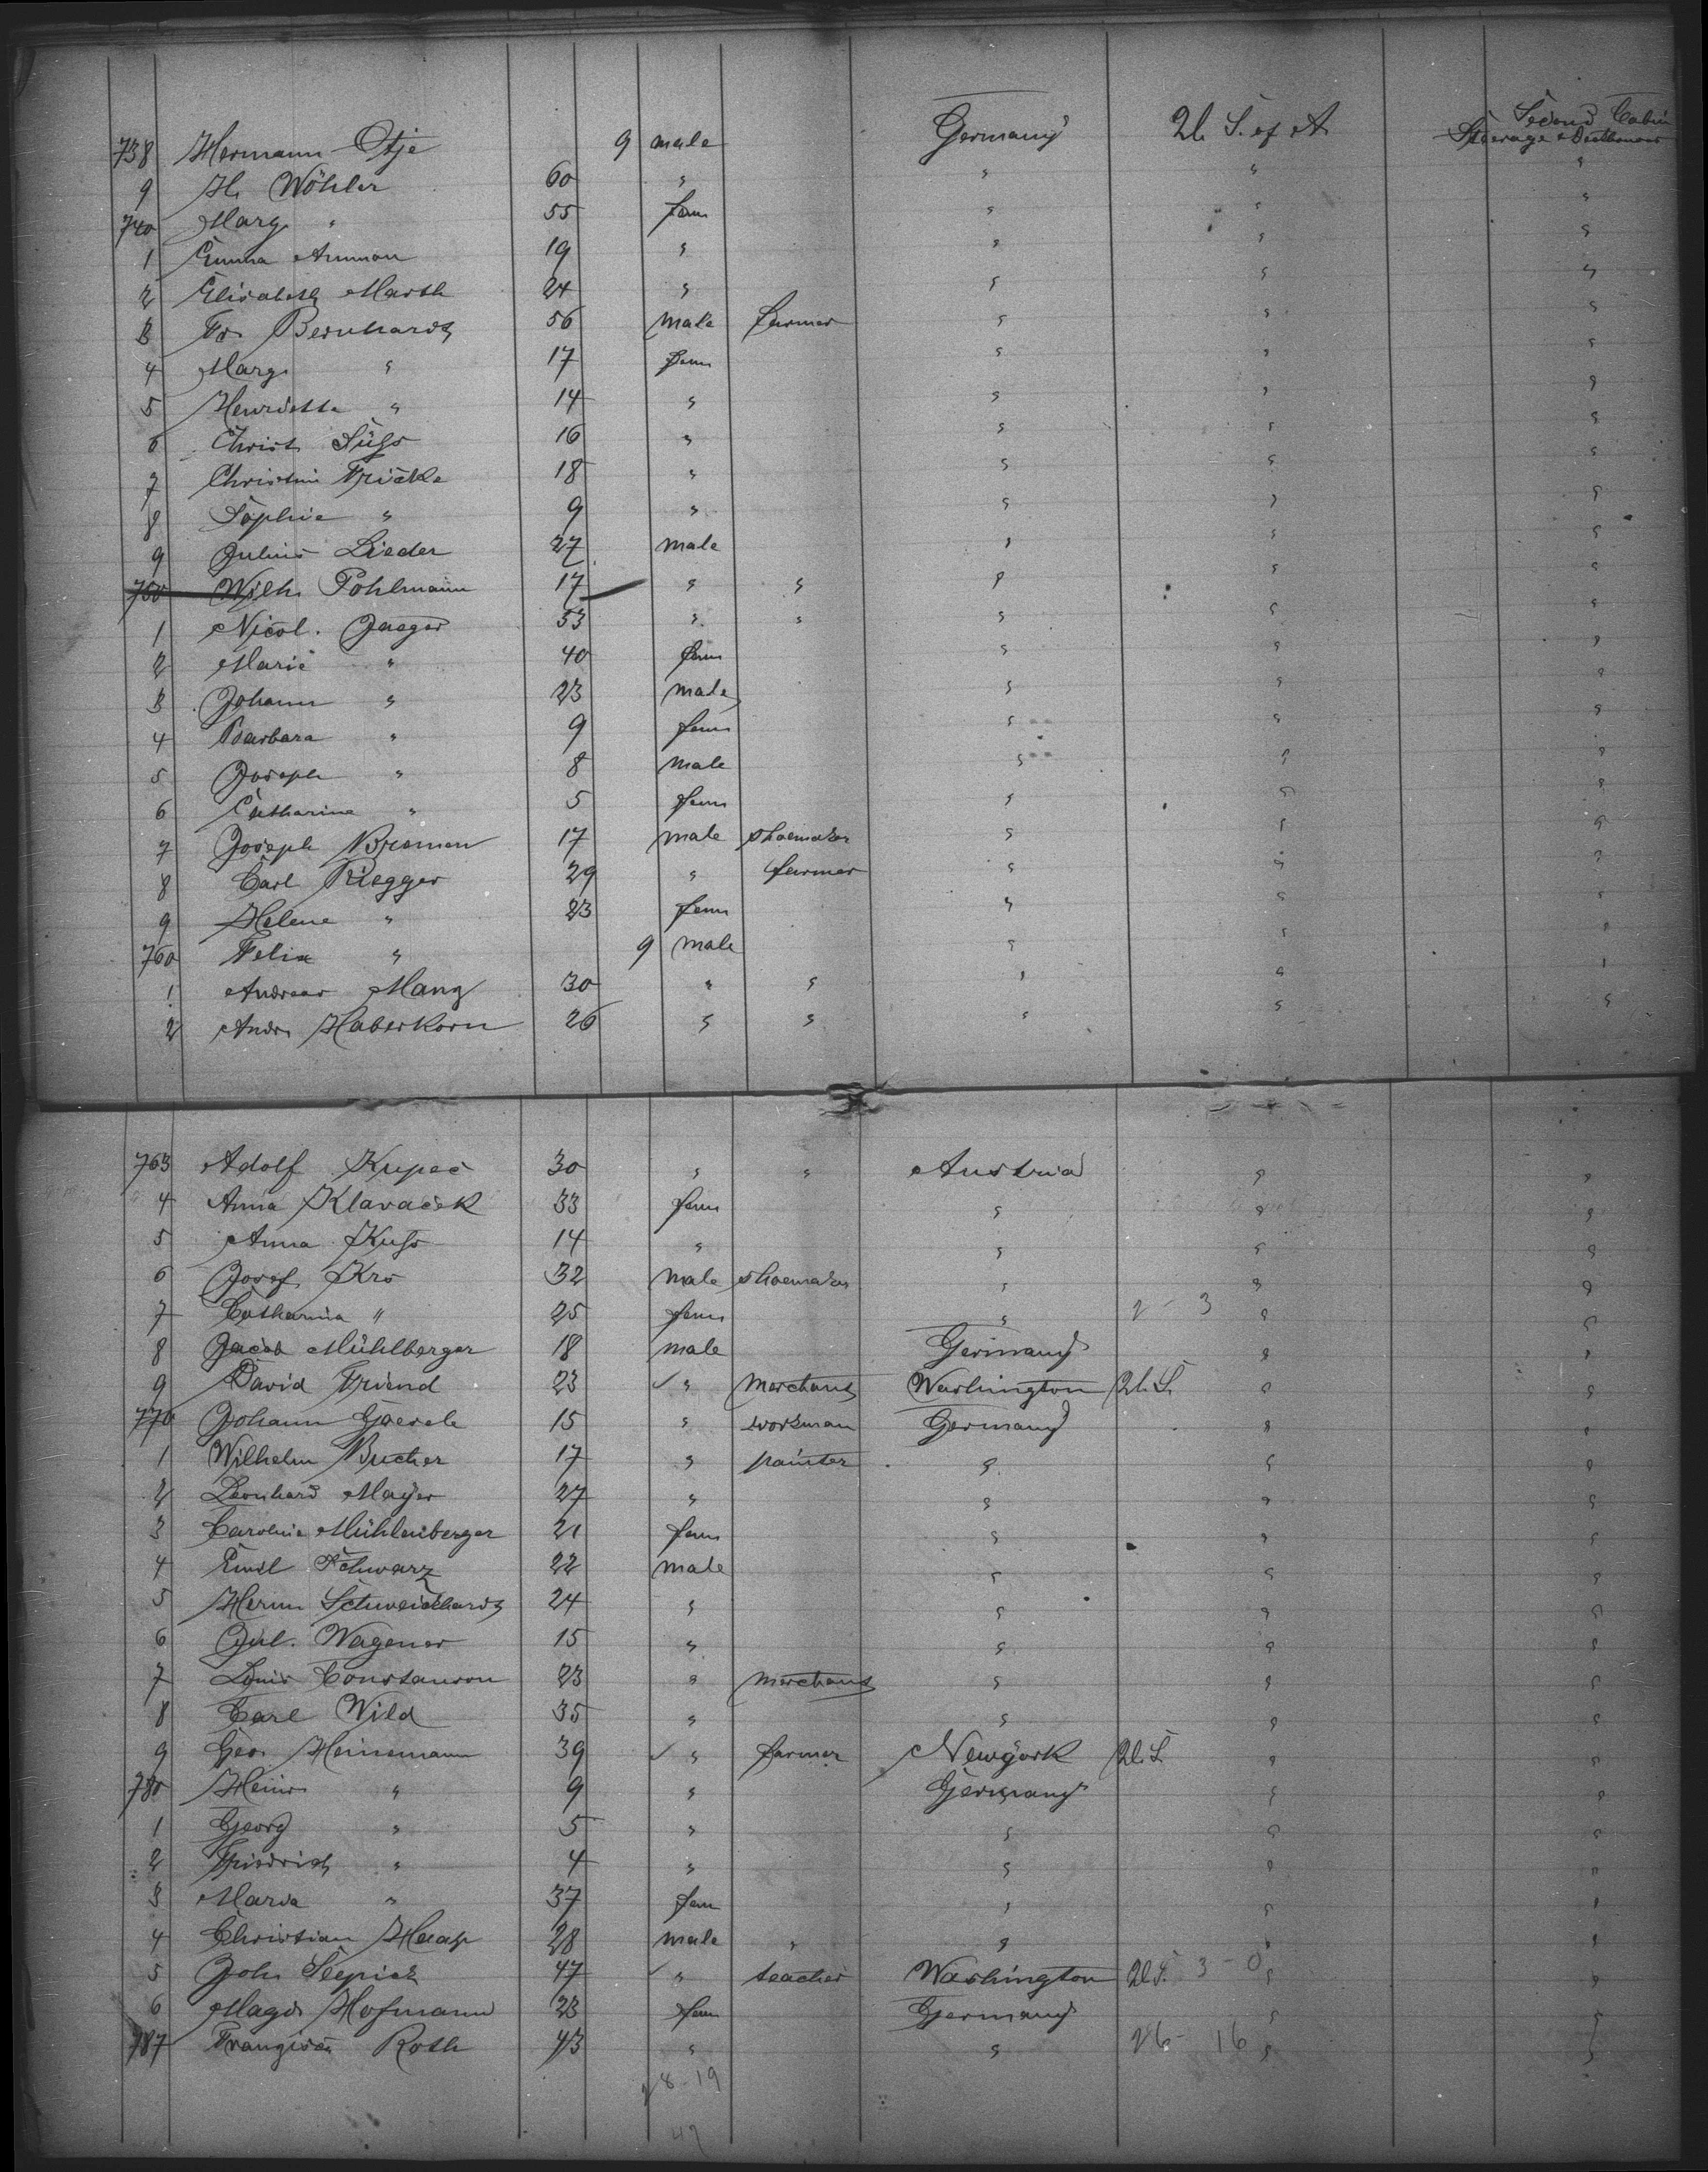 738 Hermann Otje 9 male Germany U. S. of A. Second Cabin
Steerage
9 H. Wöhler 60 " " " "
740 Marg. " 55 fem " " "
1 Emma Ammon 19 " " " "
2 Elisabeth Marth 24 " " " "
3 Fr. Bernhardt 56 male farmer " " "
4 Marg. " 17 fem " " "
5 Henriette " 14 " " " "
6 Christ. Süss 16 " " " "
7 Christine Fricke 18 " " " "
8 Sophie " 9 " " " "
9 Julius Lieder 27 male " " "
750 Wilh. Pohlmann 17 " " " " "
1 Nicol. Jaeger 53 " " " " "
2 Marie " 40 fem " " "
3 Johann " 23 male " " "
4 Barbara " 9 fem " " "
5 Joseph " 8 male " " "
6 Catharine " 5 fem " " "
7 Joseph Bremen 17 male shoemaker " " "
8 Carl Riegger 29 " farmer " " "
9 Helene " 23 fem " " "
760 Felix " 9 male " " "
1 Andreas Mang 30 " " " " "
2 Andr. Haberkorn 26 " " " " "
763 Adolf Kupec 30 " " Austria " "
4 Anna Klavacek 33 fem " " "
5 Anna Kuss 14 " " " "
6 Josef Krs 32 male shoemaker " " "
7 Catharina " 25 fem " 2 - 3 " "
8 Jacob Mühlberger 18 male Germany " "
9 David Friend 23 " merchant Washington U. S. " "
770 Johann Gaerele 15 " workman Germany " "
1 Wilhelm Bucher 17 " painter " " "
2 Leonhard Mayer 27 " " " "
3 Caroline Mühlenberger 21 fem " " "
4 Emil Schwarz 22 male " " "
5 Herm. Schweickhardt 24 " " " "
6 Jul. Wagener 15 " " " "
7 Louis Constanson 23 " merchant " " "
8 Carl Wild 35 " " " "
9 Geo. Heinemann 39 " farmer Newyork U. S. " "
780 Heinr. " 9 " Germany " "
1 Georg " 5 " " " "
2 Friedrich " 4 " " " "
3 Maria " 37 fem " " "
4 Christian Haap 28 male " " " "
5 John Seepick 47 " teacher Washington U. S. 3 - 0 " "
6 Magd. Hofmann 23 fem Germany " "
787 Roth 43 " " 26 - 16 " "
28 - 19
47